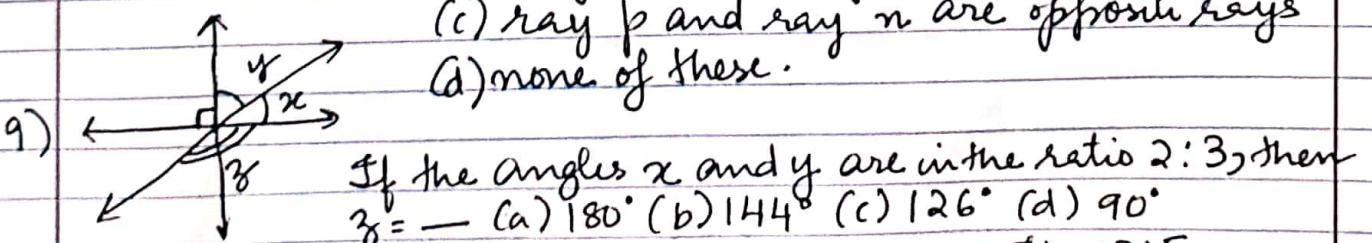 (c) ray p and ray n are opposite rays
(d) none of these.
9)
y
x
z
If the angles x and y are in the ratio 2:3, then
z = — (a) 180° (b) 144° (c) 126° (d) 90°